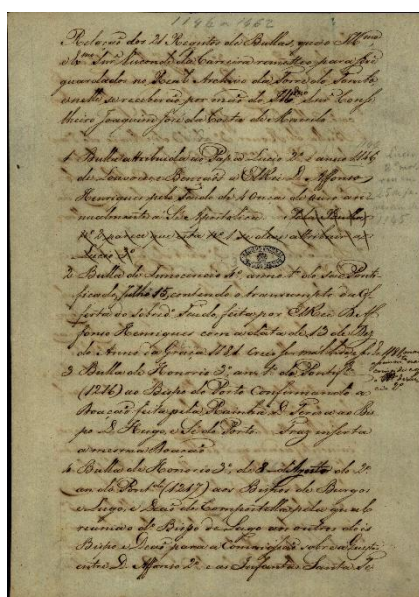 1146 a 1662
Relação dos 21 Registos de Bullas, que o Illmo
e Exmo Snr Visconde da Carreira remetteo para ser
guardados no Real Archivo da Torre do Tombo
e nelle se receberão por mão do Snr Conse
lheiro Joaquim José da Costa de Macedo
1 Bulla attribuida ao Papa Lucio 2º anno 1146
de Louvor e Benção a ElRei D. Affonso
Henriques pelo feudo de 4 Onças de ouro an
nualmente a Sé Apostolica
nº 2 parece que esta nº 1 se deve attribuir a
Lucio
2 Bulla de Innocencio 4º anno 1º do seu Ponti
ficado, folha 15, contendo o transumpto da Of
ferta do sobredº feudo, feita por ElRei D. Af
fonso Henriques com a data de 13 de
do Anno da Graça
3 Bulla de Honorio 3º an 1º do Pontifº
(1216) ao Bispo do Porto Confirmando a
Doação feita pela Rainha D. Teresa ao Bis
po D. Hugo, e Sé do Porto. Traz inserta
a mesma Doação
4 Bulla de Honorio 3º de 8 do 2º
an do Pontdo (1217) aos Bispos de Burgos
e Lugo, e Deão de Compostella pela qual
reunia o Bispo de Lugo aos outros dois
Bispo e Deão para a Comissão sobre a
entre D. Affonso 2º e as Infantas Santa Te